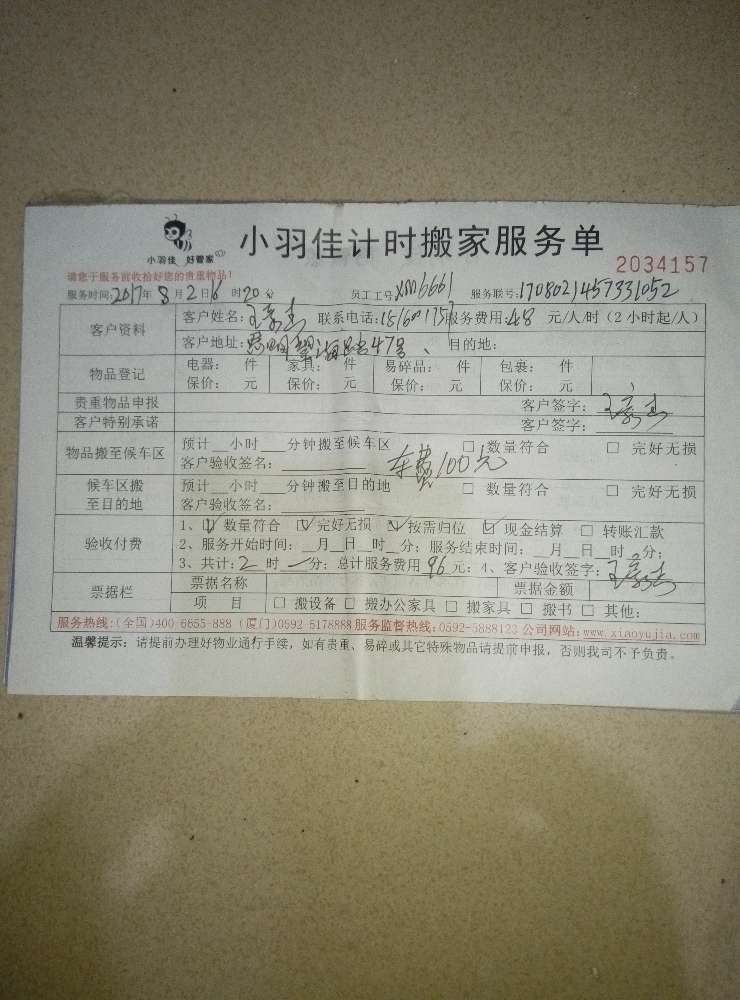 小羽佳 好管家
小羽佳计时搬家服务单
2034157
请您于服务前收拾好您的贵重物品!
服务时间:2017年 8月2日16时20分 员工工号XM6661 服务联号:1708021457331052
客户资料
客户姓名:王 联系电话: 服务费用:48 元/人/时(2小时起/人)
客户地址:思明 海 47号、 目的地:
物品登记
电器: 件 家具: 件 易碎品: 件 包裹: 件
保价: 元 保价: 元 保价: 元 保价: 元
贵重物品申报 客户签字:王
客户特别承诺 客户签字:
物品搬至候车区
预计__小时__分钟搬至候车区 □ 数量符合 □ 完好无损
客户验收签名: 车费100元
候车区搬至目的地
预计__小时__分钟搬至目的地 □ 数量符合 □ 完好无损
客户验收签名:
验收付费
1、☑ 数量符合 ☑ 完好无损 ☑ 按需归位 ☑ 现金结算 □ 转账汇款
2、服务开始时间:__月__日__时__分; 服务结束时间:__月__日__时__分;
3、共计:2 时 一分; 总计服务费用 96 元; 4、客户验收签字:王
票据栏
票据名称 票据金额
项 目 □ 搬设备 □ 搬办公家具 □ 搬家具 □ 搬书 □ 其他:
服务热线:(全国)400 6655 888 (厦门)0592 5178888 服务监督热线:0592-5888123 公司网站:www.xiaoyujia.com
温馨提示: 请提前办理好物业通行手续, 如有贵重、易碎或其它特殊物品请提前申报, 否则我司不予负责。